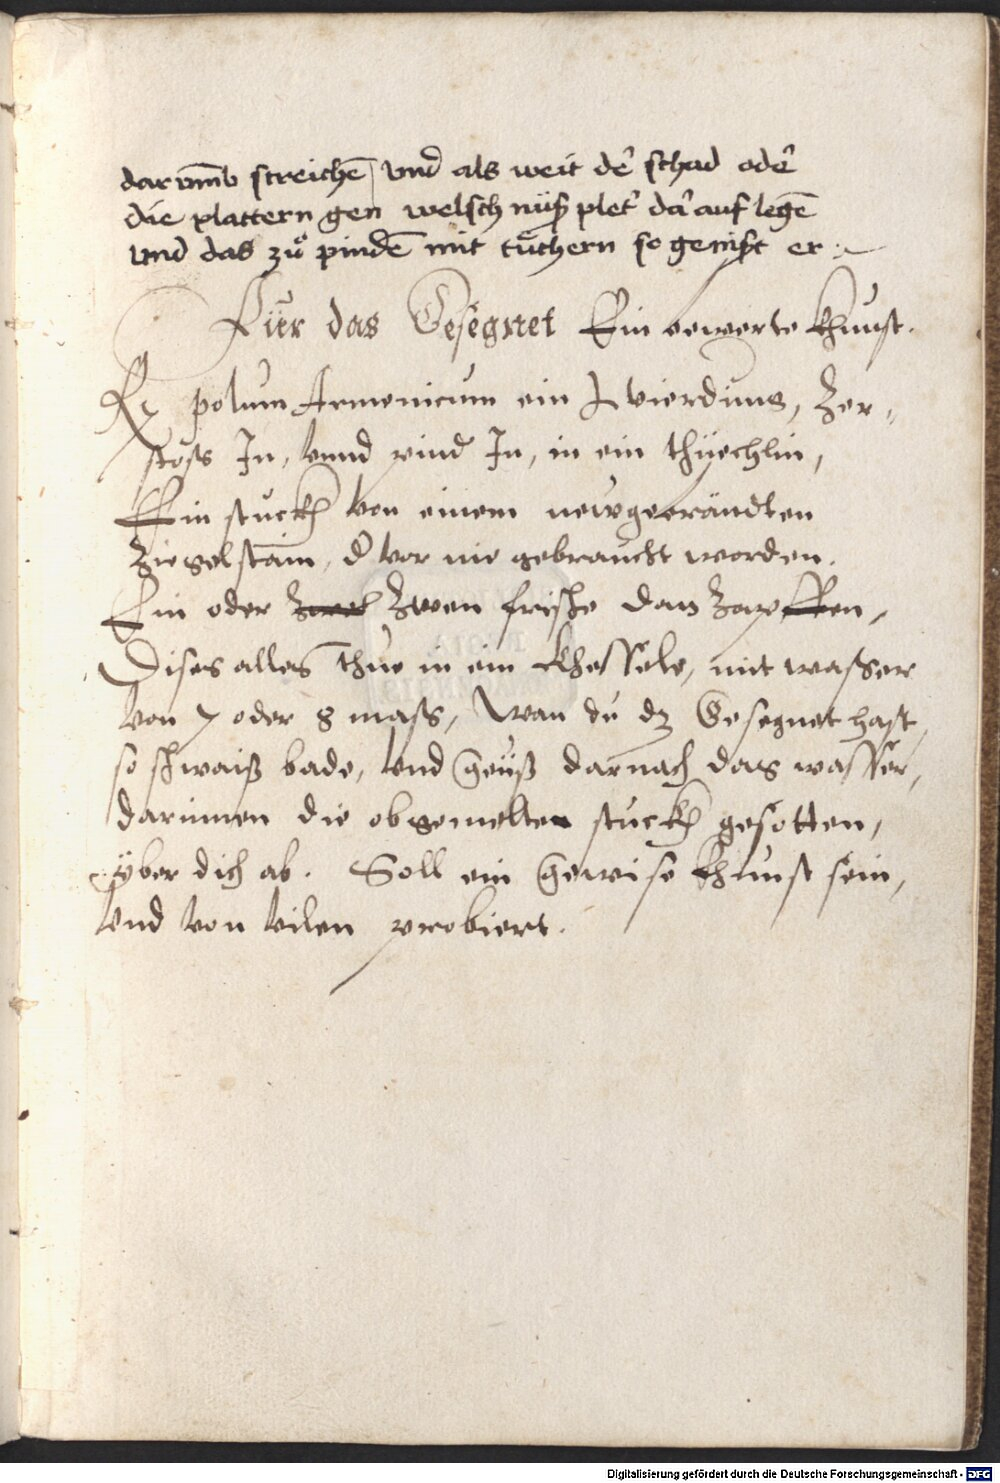 darumb streichē / vnd als weit deʼ schad odeʼ
die plattern gen welsch nüß pletʼ daʼ auf legē
vnd das zů pindē mit tůchern so genißt er :~
Für das Gesegnet Ein bewerte khunst.
Rx polum Armenicum ein L vierdung, Zer-
stoß In, vnnd pind In, in ein thüechlin,
Ein stuckh von einem newgebrändten
Ziegelstain, d vor nie gebraucht worden.
Ein oder Zwen frische Dan Zapffen,
Dises alles thue in ein Khessele, mit wasser
von 7 oder 8 mass, Wan du dz Gesegnet hast,
so schwaiß bade, vnd geüß darnach das wasser,
darinnen die obgemelten stuckh gesotten,
über dich ab. Soll ein gewise khunst sein,
vnd von vilen probiert.
Digitalisierung gefördert durch die Deutsche Forschungsgemeinschaft - DFG